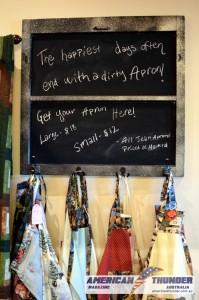 The happiest days often
end with a dirty Apron!
Get your Apron Here!
Large - $15
Small - $12
- All Jean Aprons
Priced as Marked
AMERICAN THUNDER
MAGAZINE
AUSTRALIA